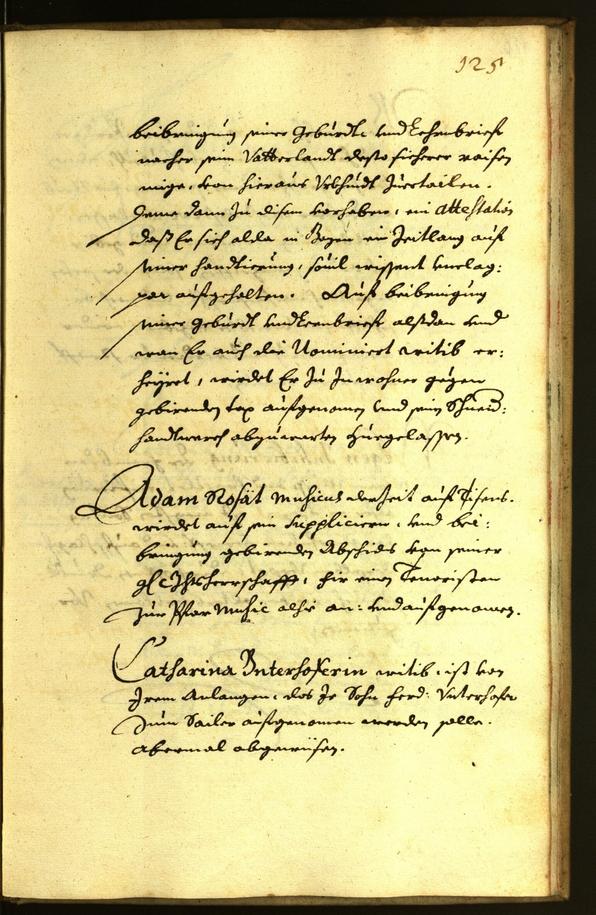 125
beibringung seiner Geburdts und Lehrnbrieff
nacher sein Vatterlandt desto sicherer raisen
müge, von hieraus Urkhundt zuertailen.
Jeme dann zu disem vorhaben, ein attestation
daß Er sich alda in Bozen ein Zeitlang auf
seiner handtierung, souil wissent unclag:
par aufgehalten. Auf beibringung
seiner geburdt und Lernbrieff alsdan und
wan Er auch die Nominiert witib er:
heyret, wirdet Er zu Inwohner gegen
gebirenden tax aufgenomen und sein Schneid:
handtwerch abzuwarten zuegelassen.
Adam Rosat Musicus derzeit auf Tisens.
wirdet auf sein Suppliciern, und bei:
bringung gebirenden Abschids von seiner
Ghtsherrschafft, fir einen Tenoristen
zur Pfar Music alhie an: und aufgenomen.
Catharina Unterhoferin witib, ist von
Jrem Anlangen, das Jr Sohn ferd: Unterhofer
zum Sailer aufgenomen werden solle.
abermal abgewisen.